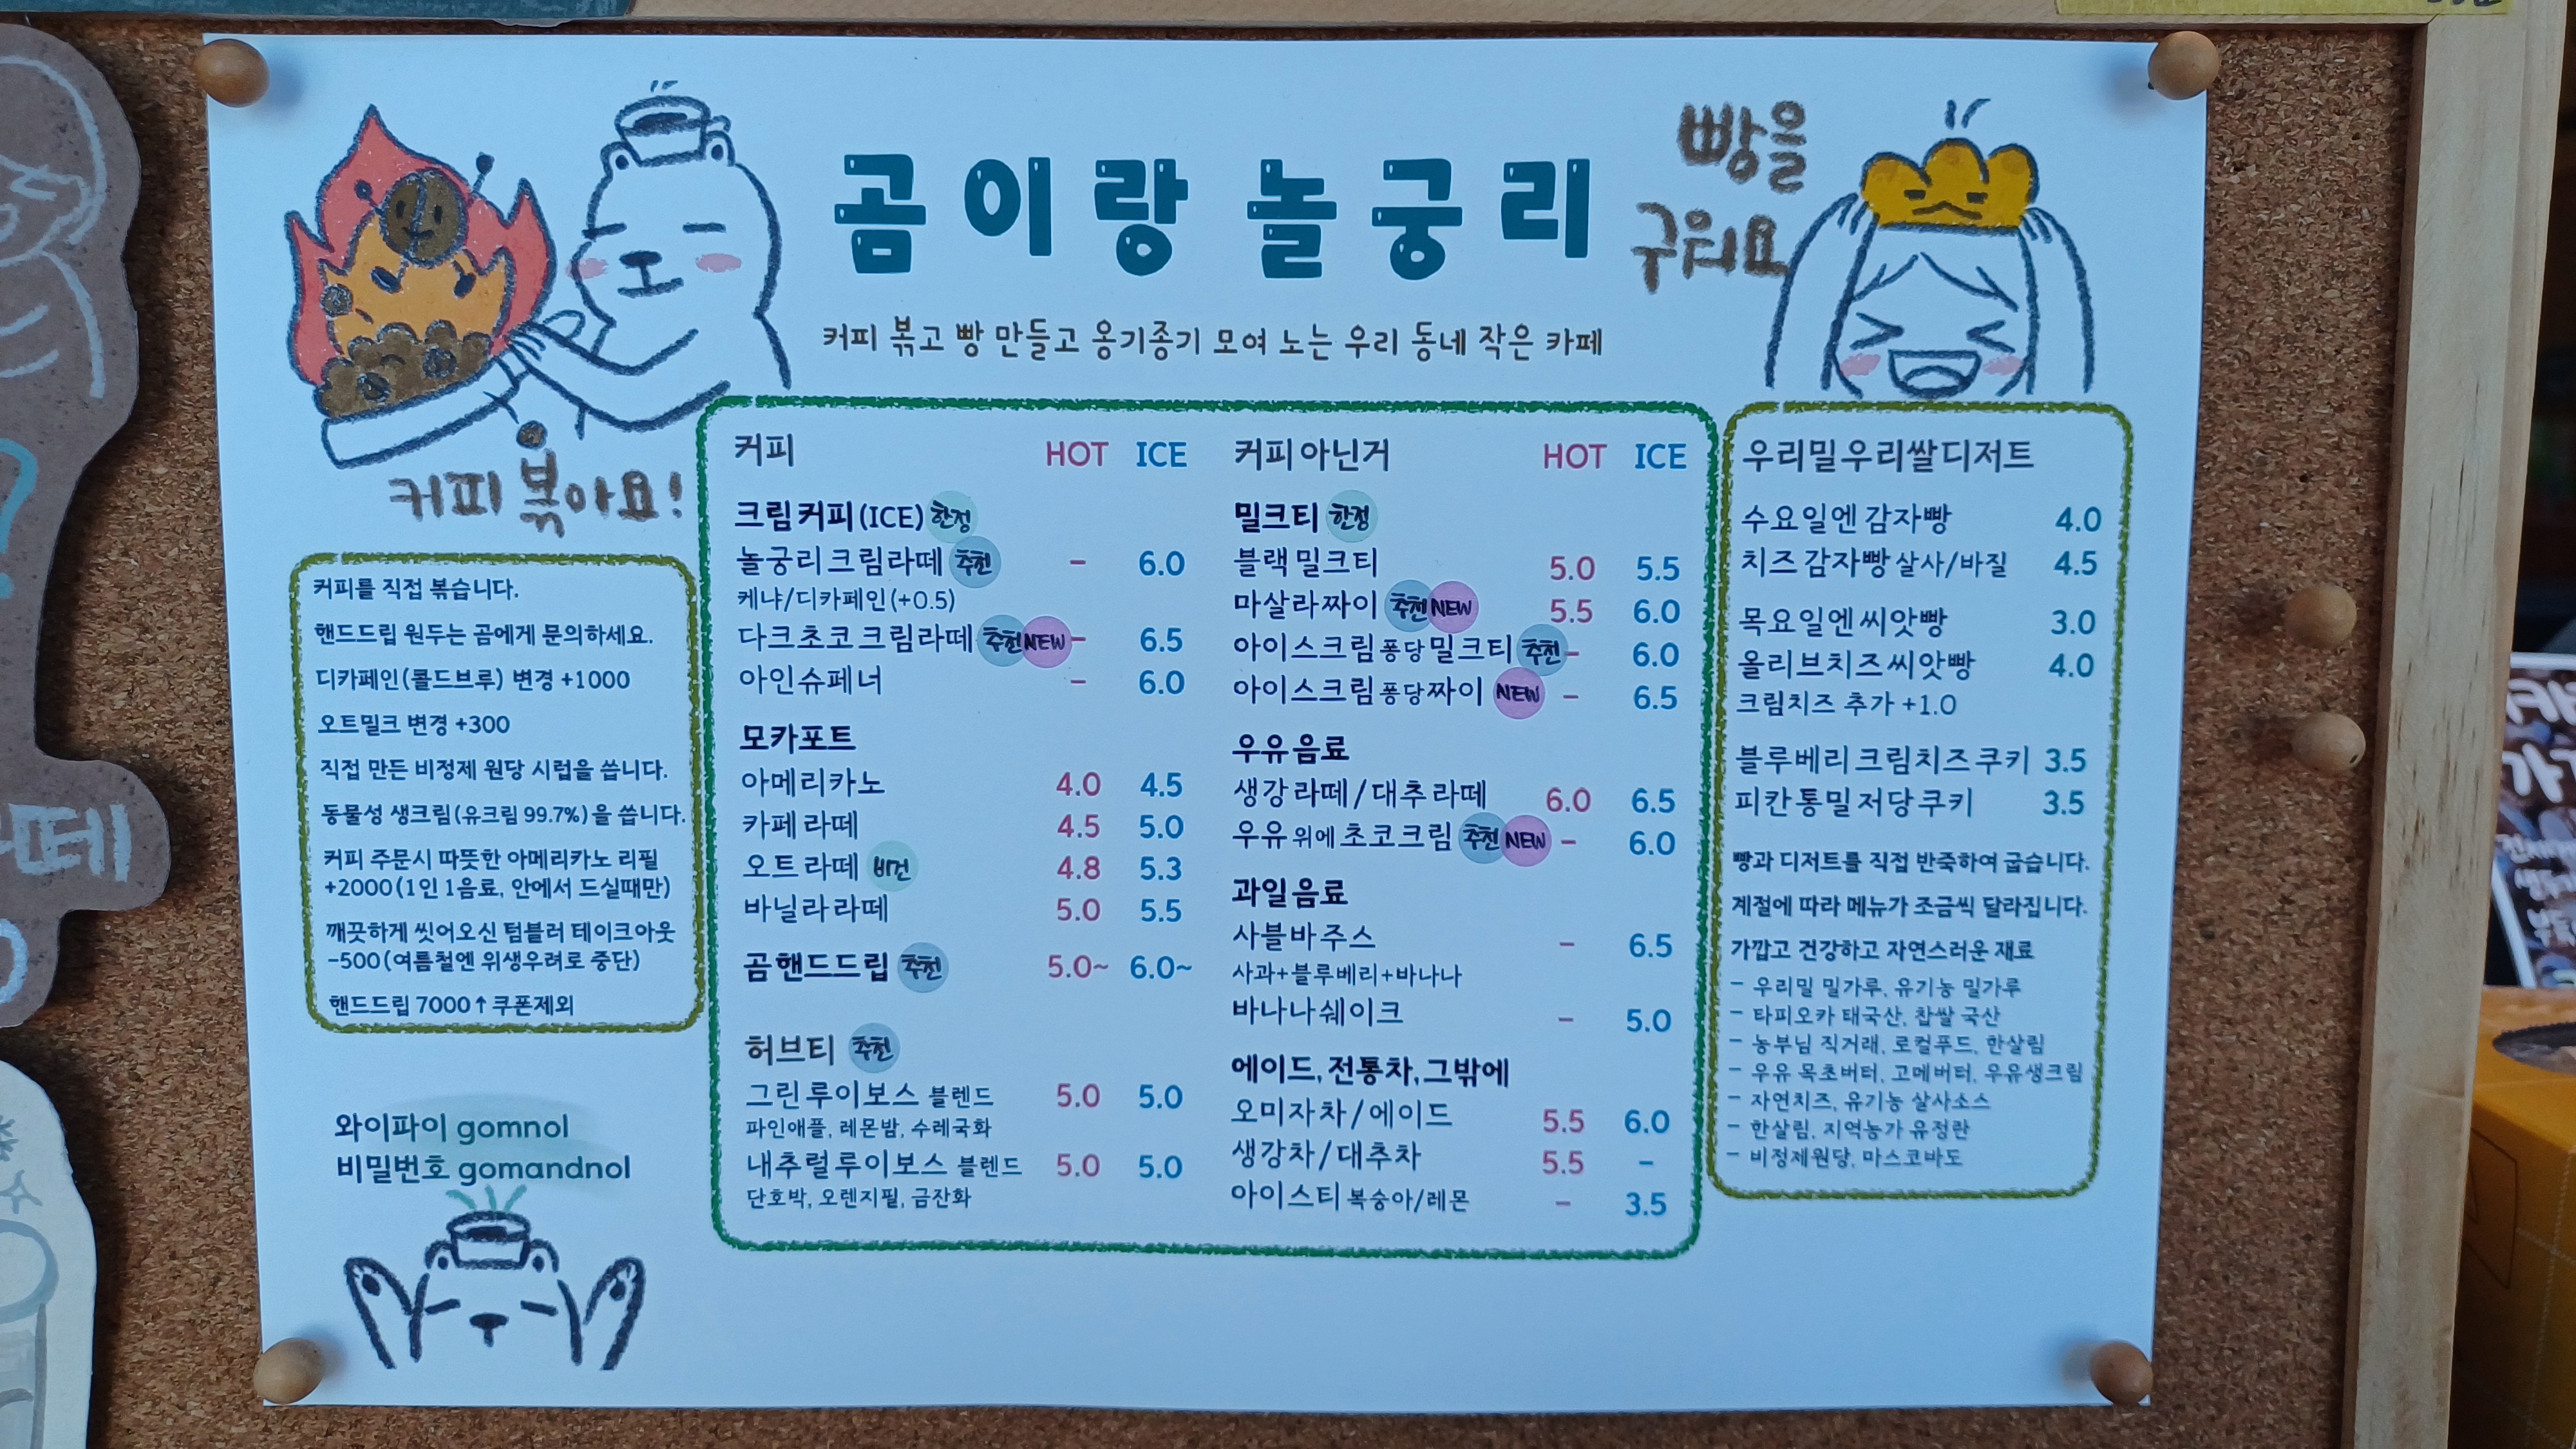 곰이랑 놀궁리
빵을
구워요
커피 볶고 빵 만들고 옹기종기 모여 노는 우리 동네 작은 카페
커피 볶아요!
커피를 직접 볶습니다.
핸드드립 원두는 곰에게 문의하세요.
디카페인(콜드브루) 변경 +1000
오트밀크 변경 +300
직접 만든 비정제 원당 시럽을 씁니다.
동물성 생크림(유크림 99.7%)을 씁니다.
커피 주문시 따뜻한 아메리카노 리필
+2000(1인 1음료, 안에서 드실때만)
깨끗하게 씻어오신 텀블러 테이크아웃
-500(여름철엔 위생우려로 중단)
핸드드립 7000↑ 쿠폰제외
와이파이 gomnol
비밀번호 gomandnol
커피 HOT ICE
크림커피(ICE) 한정
놀궁리크림라떼 추천 - 6.0
케냐/디카페인(+0.5)
다크초코크림라떼 추천 NEW - 6.5
아인슈페너 - 6.0
모카포트
아메리카노 4.0 4.5
카페라떼 4.5 5.0
오트라떼 비건 4.8 5.3
바닐라라떼 5.0 5.5
곰핸드드립 추천 5.0~ 6.0~
허브티 추천
그린루이보스 블렌드 5.0 5.0
파인애플, 레몬밤, 수레국화
내추럴루이보스 블렌드 5.0 5.0
단호박, 오렌지필, 금잔화
커피아닌거 HOT ICE
밀크티 한정
블랙밀크티 5.0 5.5
마살라짜이 추천 NEW 5.5 6.0
아이스크림퐁당밀크티 추천 - 6.0
아이스크림퐁당짜이 NEW - 6.5
우유음료
생강라떼/대추라떼 6.0 6.5
우유위에초코크림 추천 NEW - 6.0
과일음료
사블바주스 - 6.5
사과+블루베리+바나나
바나나쉐이크 - 5.0
에이드,전통차,그밖에
오미자차/에이드 5.5 6.0
생강차/대추차 5.5 -
아이스티 복숭아/레몬 - 3.5
우리밀우리쌀디저트
수요일엔감자빵 4.0
치즈감자빵살사/바질 4.5
목요일엔씨앗빵 3.0
올리브치즈씨앗빵 4.0
크림치즈 추가 +1.0
블루베리크림치즈쿠키 3.5
피칸통밀저당쿠키 3.5
빵과 디저트를 직접 반죽하여 굽습니다.
계절에 따라 메뉴가 조금씩 달라집니다.
가깝고 건강하고 자연스러운 재료
- 우리밀 밀가루, 유기농 밀가루
- 타피오카 태국산, 찹쌀 국산
- 농부님 직거래, 로컬푸드, 한살림
- 우유 목초버터, 고메버터, 우유생크림
- 자연치즈, 유기농 살사소스
- 한살림, 지역농가 유정란
- 비정제원당, 마스코바도